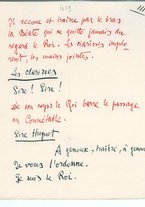 419
Il recule et traîne par le bras
la Bête qui ne quitte jamais du
regard le Roi. Les clarisses implo-
rent, les mains jointes.
Les clarisses
Sire ! Sire !
De son corps le Roi barre le passage
au Connétable.
Sire Huguet
A genoux, traître, à genoux
Je vous l'ordonne.
Je suis le Roi.